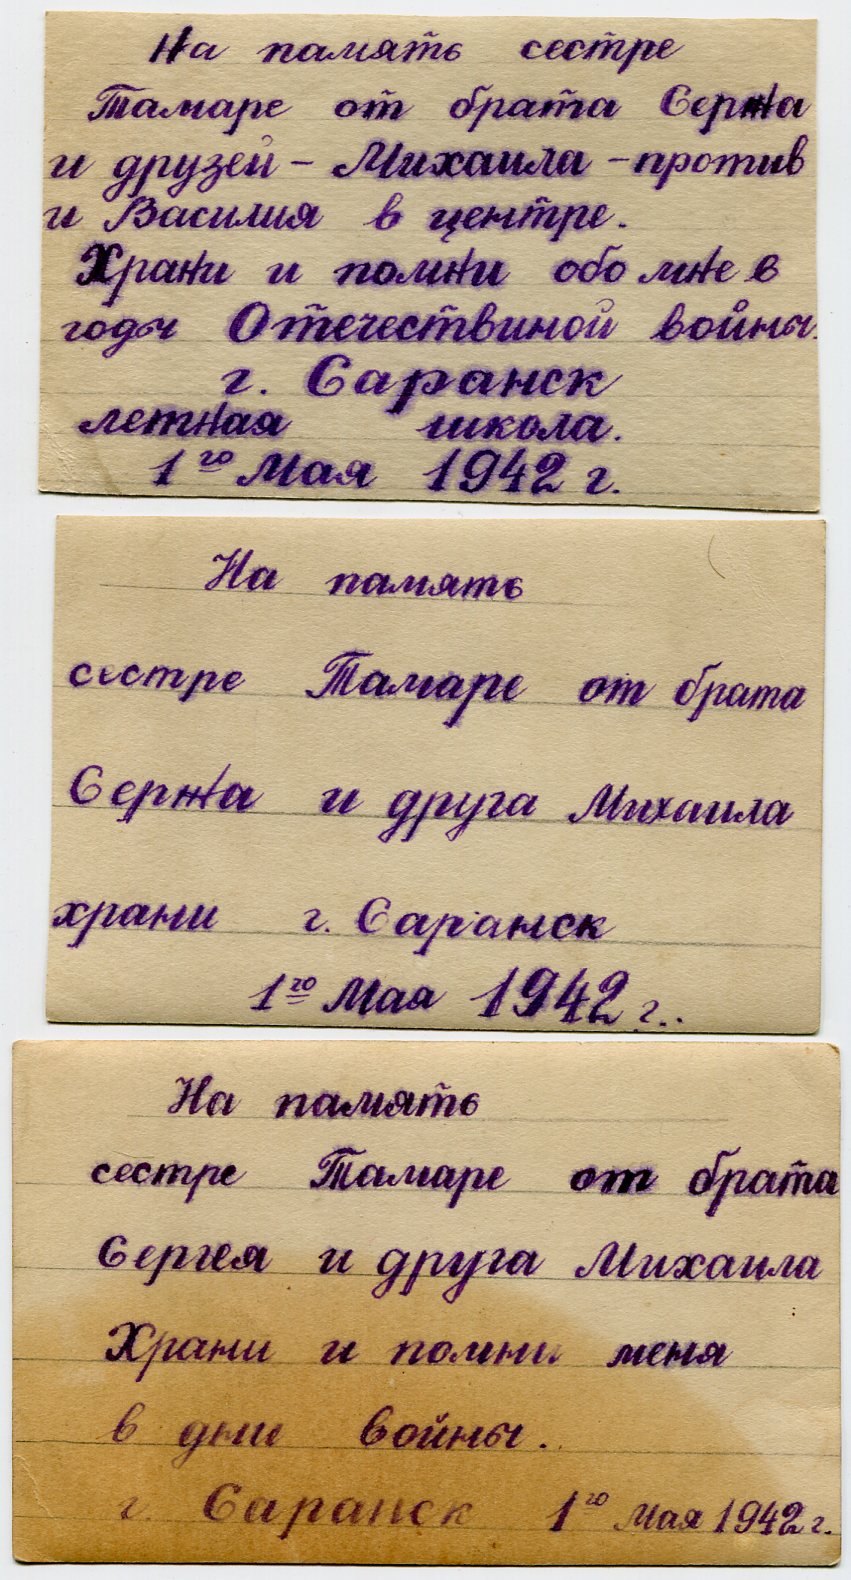 На память сестре
Тамаре от брата Сержа
и друзей - Михаила - против
и Василия в центре.
Храни и помни обо мне в
годы Отечествиной войны.
г. Саранск
летная школа.
1го Мая 1942 г.
На память
сестре Тамаре от брата
Сержа и друга Михаила
храни г. Саранск
1го Мая 1942 г..
На память
сестре Тамаре от брата
Сергея и друга Михаила
Храни и помни меня
в дни войны.
г. Саранск 1го Мая 1942 г.